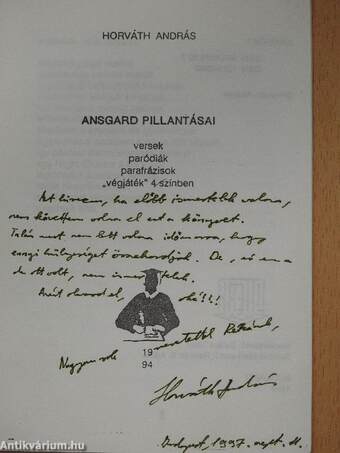 HORVÁTH ANDRÁS
ANSGARD PILLANTÁSAI
versek
paródiák
parafrázisok
„végjáték” 4 színben
Azt hiszem, ha előbb ismertelek volna,
nem követtem volna el ezt a könyvet.
Talán mert nem lett volna időm arra, hogy
ennyi hülyeséget összehordjak. De
de ott volt, nem ismertelek.
Azért olvasd el, oké!!!
19
94
Nagyon sok szeretettel
Horváth András
Budapest, 1997. szept.
Antikvárium.hu